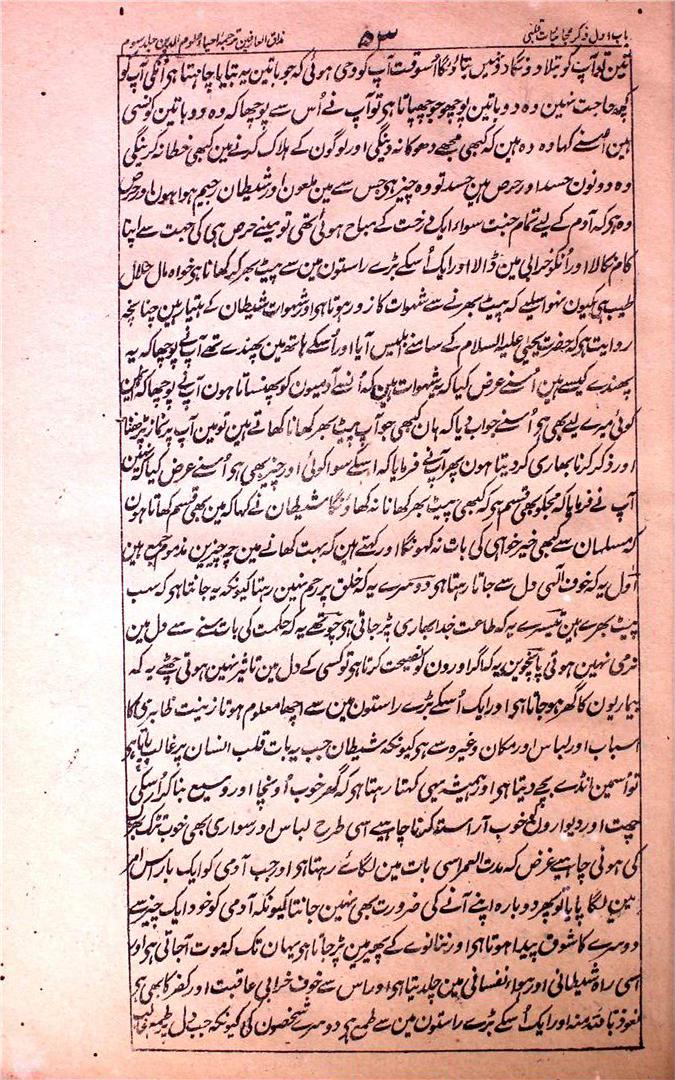 باب اول ذکر عجائبات قلبی ۵۳ مذاق العارفین ترجمۂ احیاء علوم الدین جلد سوم
تین تو آپ کو بتلا دونگا دو نہیں بتاؤنگا اُسوقت آپ کو وحی ہوئی کہ جو باتین یہ بتایا چاہتا ہی اُنکی آپ کو
کچھ حاجت نہین وہ دو باتین پوچھو جو چھپاتا ہی تو آپ نے اُس سے پوچھا کہ وہ دو باتین کونسی
ہین اُسنے کہا وہ دو ہین کہ کبھی مجھے دھوکا نہ دینگی اور لوگون کے ہلاک کرنے مین کبھی خطا نہ کرینگی
وہ دونون حسد اور حرص ہین حسد تو وہ چیز ہی جس سے مین ملعون اور شیطان رجیم ہوا ہون اور حرص
وہ ہی کہ آدم کے لیے تمام جنت سواے ایک درخت کے مباح ہوئی تھی تو مینے حرص ہی کی جہت سے اپنا
کام نکالا اور اُنکو خرابی مین ڈالا اور ایک اُسکے بڑے راستون مین سے پیٹ بھر کے کھانا ہی خواہ مال حلال
طیب ہی کیون نہو اسلیے کہ پیٹ بھرنے سے شہوات کا زور ہوتا ہی اور شہوات شیطان کے ہتیار ہین چنانچہ
روایت ہی کہ حضرت یحییٰ علیہ السلام کے سامنے ابلیس آیا اور اُسکے ہاتھ مین پھندے تھے آپ نے پوچھا کہ یہ
پھندے کیسے ہین اُسنے عرض کیا کہ یہ شہوات ہین کہ اُنسے آدمیون کو پھنساتا ہون آپ نے پوچھا کہ انمین
کوئی میرے لیے بھی ہی اُسنے جواب دیا کہ ہان کبھی جو آپ پیٹ بھر کھانا کھاتے ہین تو مین آپ پر نماز پڑھنا
اور ذکر کرنا بھاری کر دیتا ہون پھر آپ نے فرمایا کہ اسکے سوا کوئی اور چیز بھی ہی اُسنے عرض کیا کہ نہین
آپ نے فرمایا کہ مجکو بھی قسم ہی کہ کبھی پیٹ بھر کھانا نہ کھاؤنگا شیطان نے کہا کہ مین بھی قسم کھاتا ہون
کہ مسلمان سے کبھی خیر خواہی کی بات نہ کہونگا اور کہتے ہین کہ بہت کھانے مین چھ چیزین مذموم جمع ہین
اول یہ کہ خوف الٰہی دل سے جاتا رہتا ہی دوسرے یہ کہ خلق پر رحم نہین رہتا کیونکہ یہ جانتا ہی کہ سب
پیٹ بھرے ہین تیسرے یہ کہ طاعت خدا بھاری پڑ جاتی ہی چوتھے یہ کہ حکمت کی بات سننے سے دل مین
نرمی نہین ہوتی پانچوین یہ کہ اگر اورون کو نصیحت کرتا ہی تو کسی کے دل مین تاثیر نہین ہوتی چھٹے یہ کہ
بیماریون کا گھر ہو جاتا ہی اور ایک اُسکے بڑے راستون مین سے اچھا معلوم ہونا زینت ظاہری کا
اسباب اور لباس اور مکان وغیرہ سے ہی کیونکہ شیطان جب یہ بات قلب انسان پر غالب پاتا ہی
تو اُسمین انڈے بچے دیتا ہی اور ہمیشہ یہی کہتا رہتا ہی کہ گھر خوب اُونچا اور وسیع بنا کر اُسکی
چھت اور دیوارون کو خوب آراستہ کرنا چاہیے اسی طرح لباس اور سواری بھی خوب تزک بھڑک
کی ہونی چاہیے غرض کہ مدت العمر اسی بات مین لگائے رہتا ہی اور جب آدمی کو ایک بار اس امر
مین لگا پایا تو پھر دوبارہ اپنے آنے کی ضرورت بھی نہین جانتا کیونکہ آدمی کو خود ایک چیز سے
دوسرے کا شوق پیدا ہوتا ہی اور ننانوے کے پھیر مین پڑ جاتا ہی یہان تک کہ موت آجاتی ہی اور
اسی راہ شیطانی اور ہواے نفسانی مین چلدیتا ہی اور اس سے خوف خرابی عاقبت اور کفر کا بھی ہی
نعوذ باللہ منہا اور ایک اُسکے بڑے راستون مین سے طمع ہی دوسرے شخصون کی کیونکہ جب دل پر طمع غالب